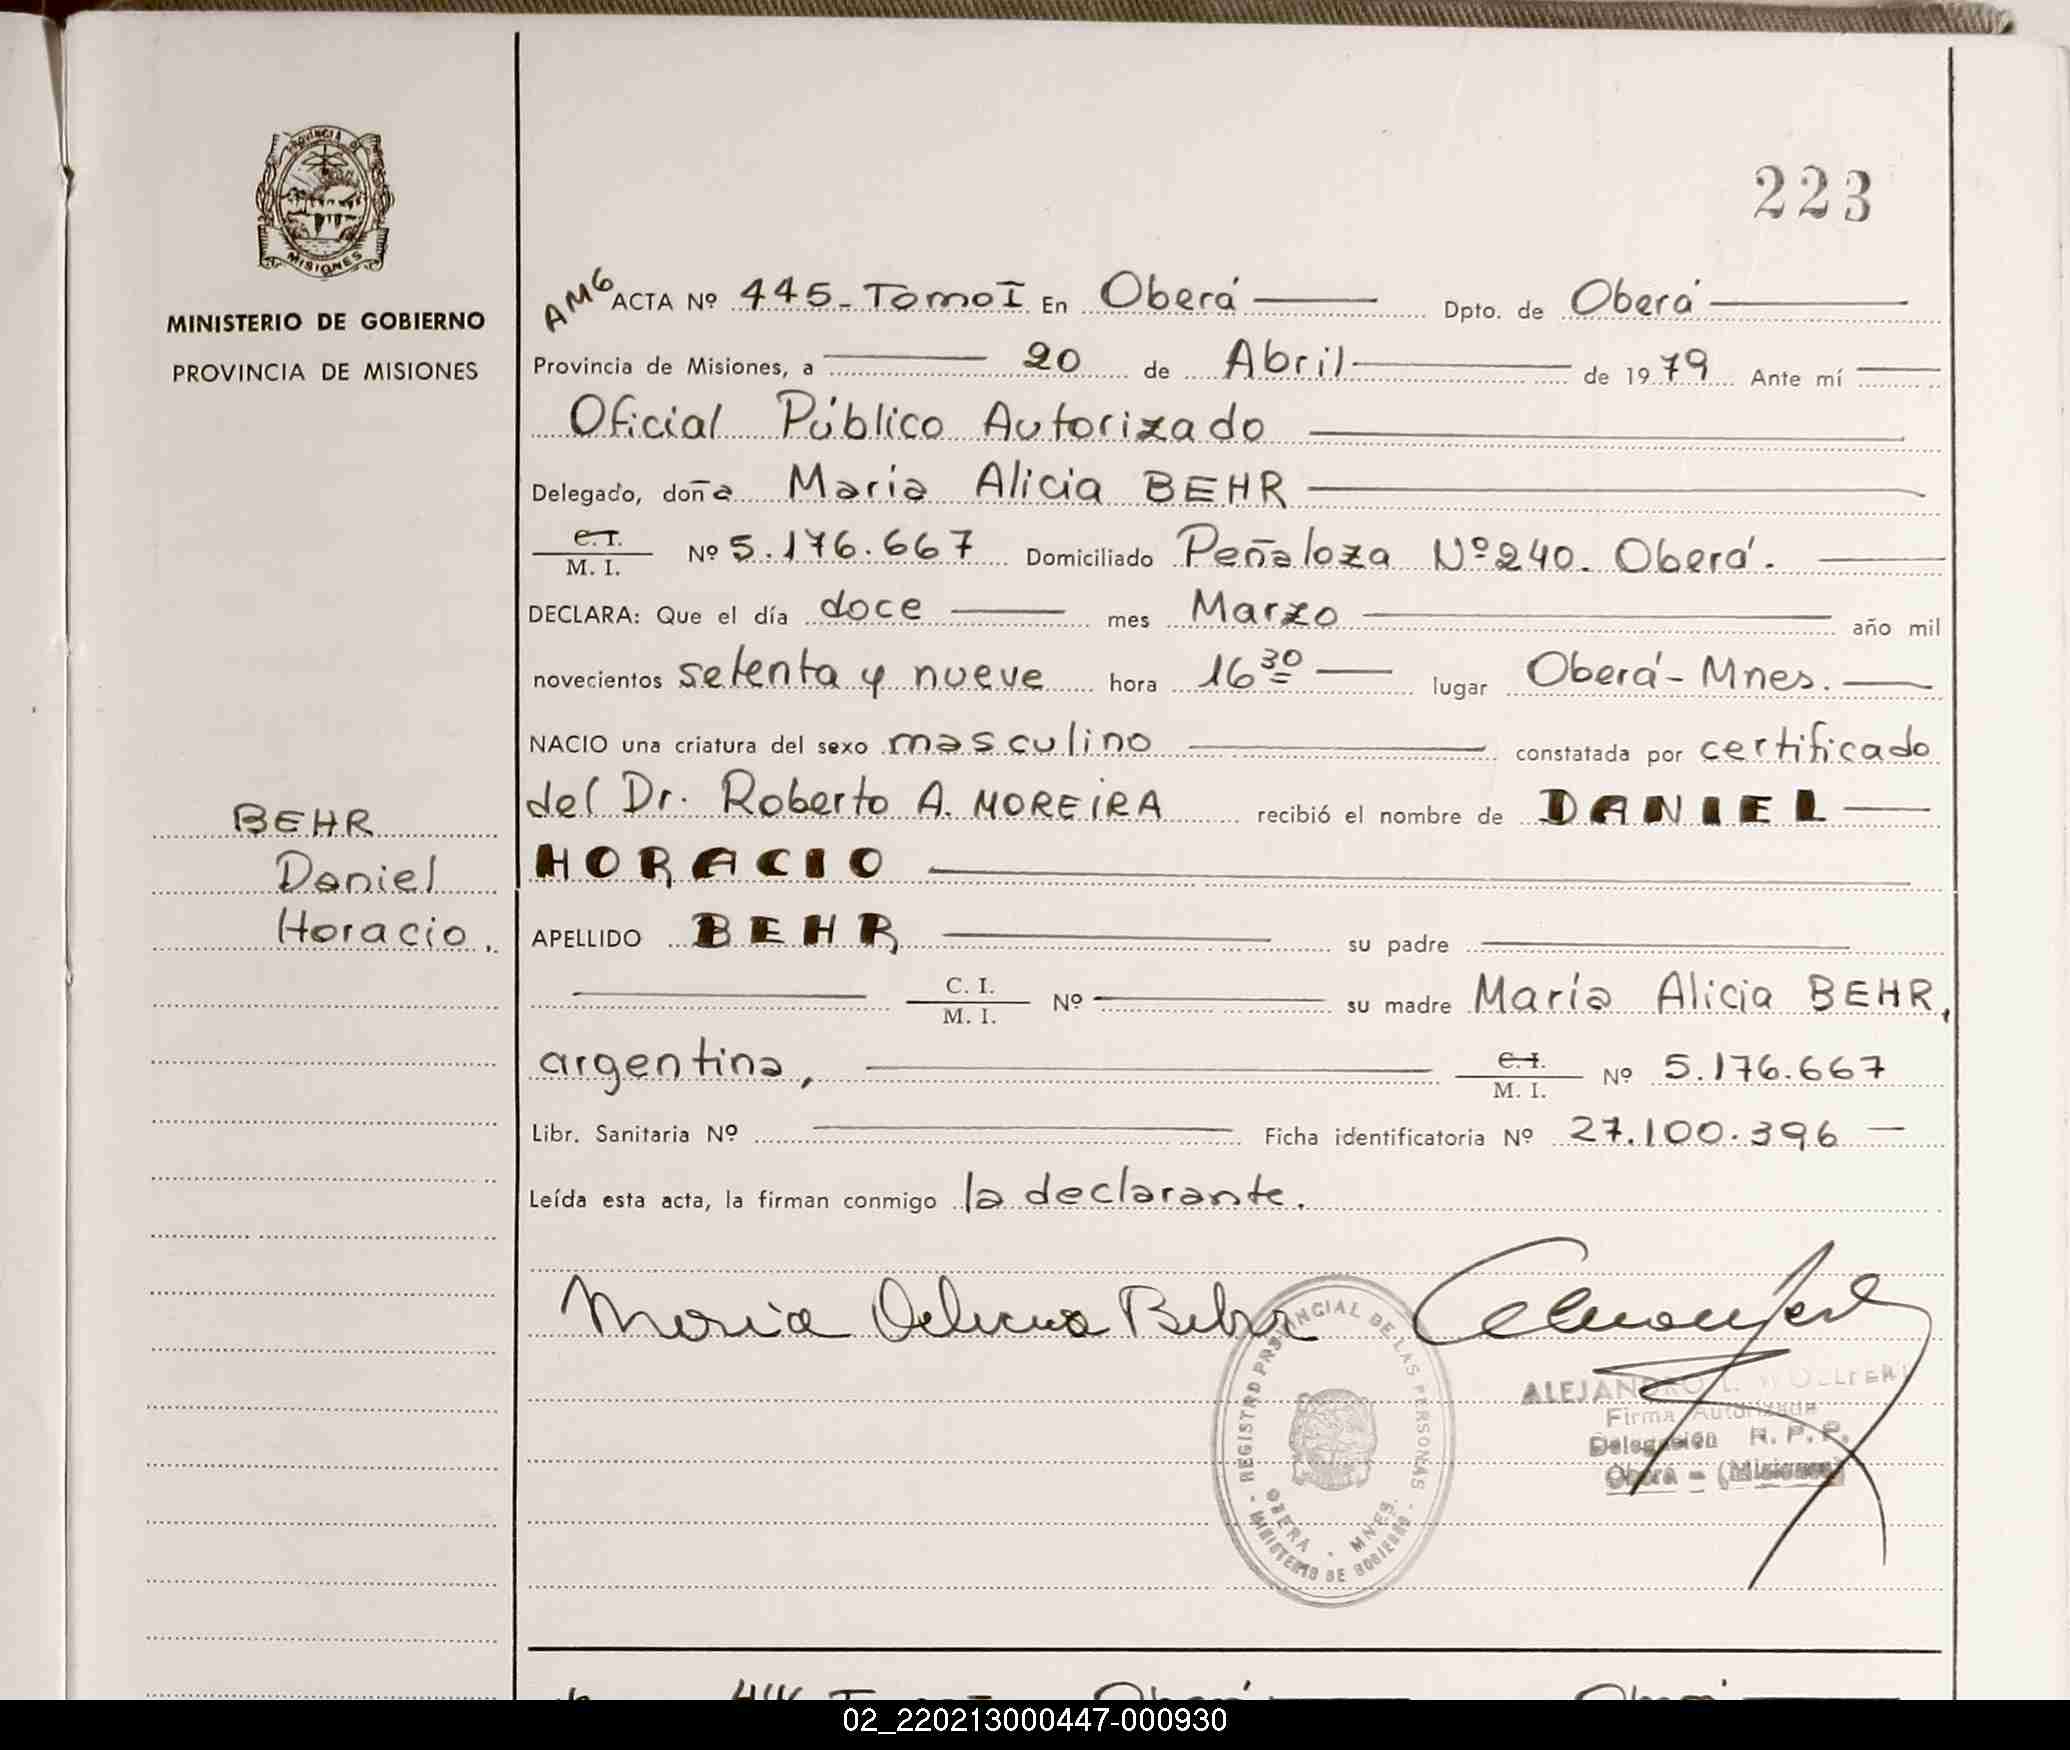 PROVINCIA DE
MISIONES
MINISTERIO DE GOBIERNO
PROVINCIA DE MISIONES
223
AMG ACTA Nº 445-Tomo I En Oberá Dpto. de Oberá
Provincia de Misiones, a 20 de Abril de 1979 Ante mí
Oficial Público Autorizado
Delegado, doña María Alicia BEHR
C. I.
M. I. Nº 5.176.667 Domiciliado Peñaloza Nº 240. Oberá.
DECLARA: Que el día doce mes Marzo año mil
novecientos setenta y nueve hora 16 30 lugar Oberá-Mnes.
NACIO una criatura del sexo masculino constatada por certificado
del Dr. Roberto A. MOREIRA recibió el nombre de DANIEL
HORACIO
BEHR
Daniel
Horacio.
APELLIDO BEHR su padre
C. I.
M. I. Nº su madre María Alicia BEHR,
argentina, C. I.
M. I. Nº 5.176.667
Libr. Sanitaria Nº Ficha identificatoria Nº 27.100.396
Leída esta acta, la firman conmigo la declarante.
Maria Alicia Behr
REGISTRO PROVINCIAL DE LAS PERSONAS
OBERA - MNES.
MINISTERIO DE GOBIERNO
ALEJANDRO L.
Firma Autorizada
Delegación R. P. P.
Oberá - (Misiones)
02_220213000447-000930